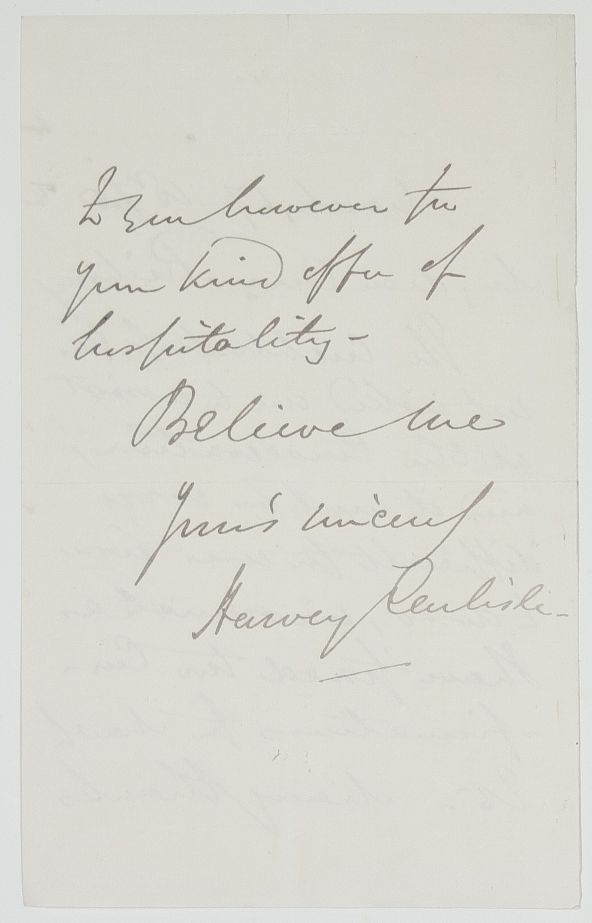 to you however for
your kind offer of
hospitality -
Believe me
Your's sincerely
Harvey